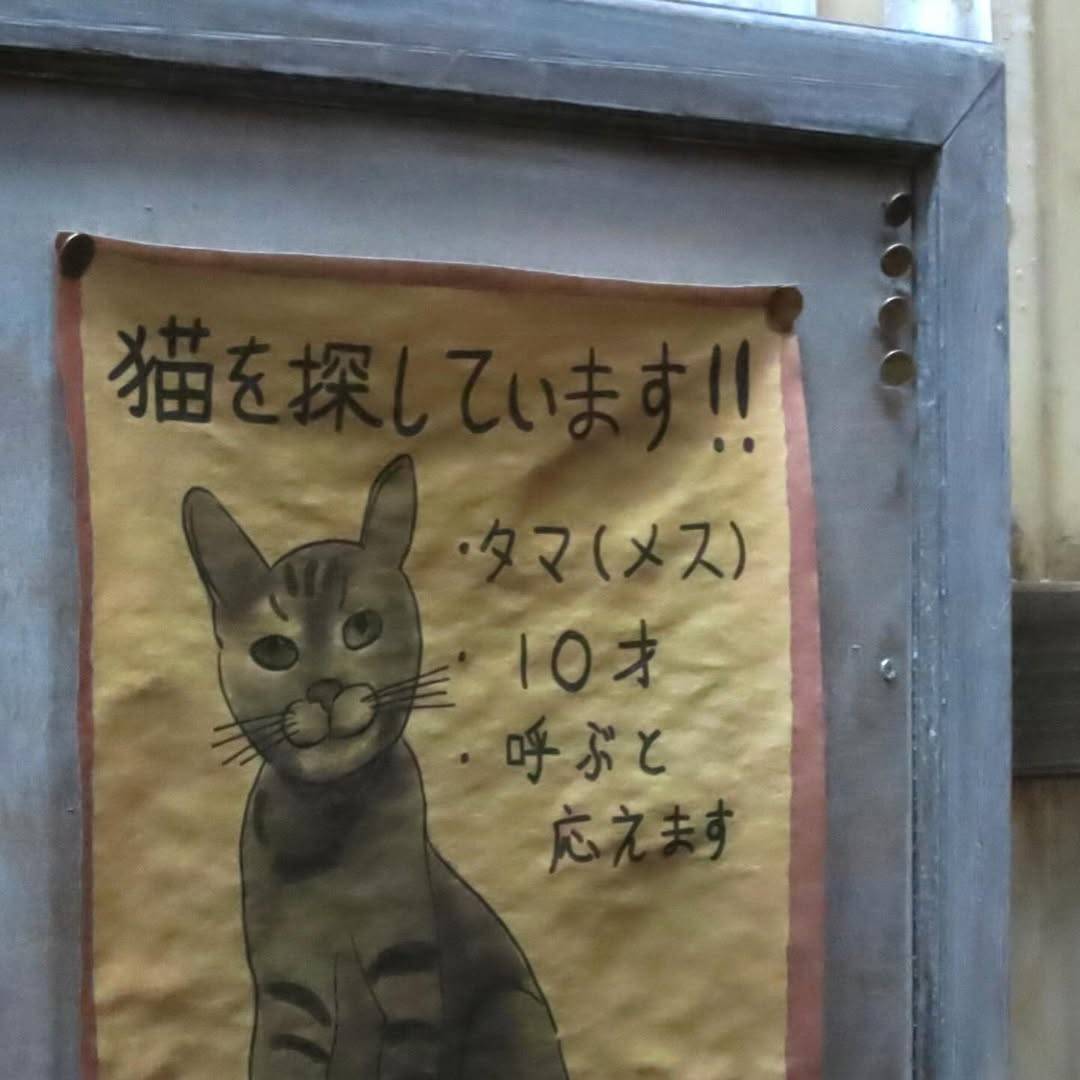 猫を探しています!!
・タマ(メス)
・10才
・呼ぶと
応えます